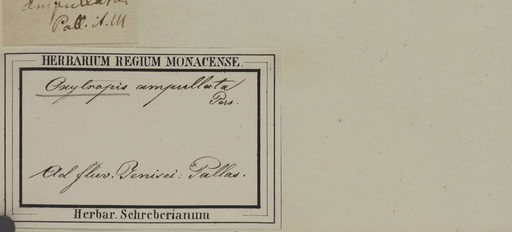 ampullata
Pall. it. III
HERBARIUM REGIUM MONACENSE.
Oxytropis ampullata
Pers.
Ad fluv. Jenisei: Pallas.
Herbar. Schreberianum